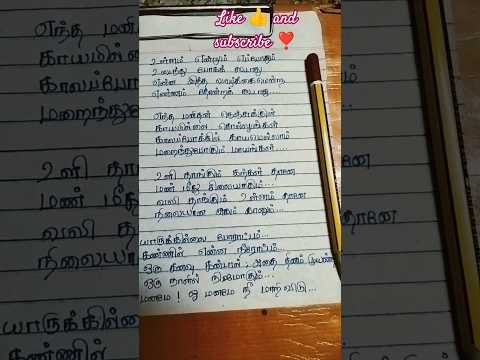 Like 👍 and
subscribe ❣️
உள்ளம் என்றும் எப்போதும்
உடைந்து போகக் கூடாது
என்ன இந்த வாழ்க்கையென்ற
எண்ணம் தோன்றக் கூடாது...
எந்த மனிதன் நெஞ்சுக்குள்
காயமில்லை சொல்லுங்கள்
காலப்போக்கில் காயமெல்லாம்
மறைந்துபோகும் மாயங்கள்...
உளி தாங்கும் கற்கள் தானே
மண் மீது சிலையாகும்...
வலி தாங்கும் உள்ளம் தானே
நிலையான சுகம் காணும்...
யாருக்கில்லை போராட்டம்...
கண்ணில் என்ன நீரோட்டம்...
ஒரு கனவு கண்டால் அதை தினம்
ஒரு நாளில் நிஜமாகும்...
மனமே! ஓ மனமே நீ மாறிவிடு...